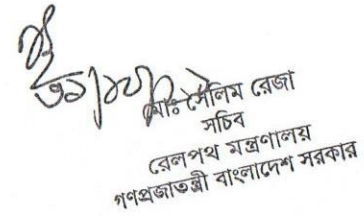 মোঃ সেলিম রেজা
সচিব
রেলপথ মন্ত্রণালয়
গণপ্রজাতন্ত্রী বাংলাদেশ সরকার